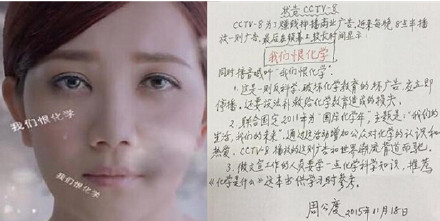 我们恨化学
我们恨化学
敬告CCTV-8
CCTV-8为了赚钱狂播商业广告,近来每晚8点半播
放一则广告,最后在银幕上较长时间显示:
我们恨化学
同时播音喊叫"我们恨化学"
1. 这是一则反科学、破坏化学教育的坏广告,应立即
停播,还要设法补救给化学教育造成的损失。
2. 联合国定2011年为"国际化学年",主题是:"我们的
生活,我们的未来",通过活动增加公众对化学的认识和
热爱。CCTV-8播放的这则广告和世界潮流背道而驰。
3. 做文宣工作的人员要学一点化学科学知识,推荐
《化学是什么》这本书供学习时参考。
周公度
2015年11月18日